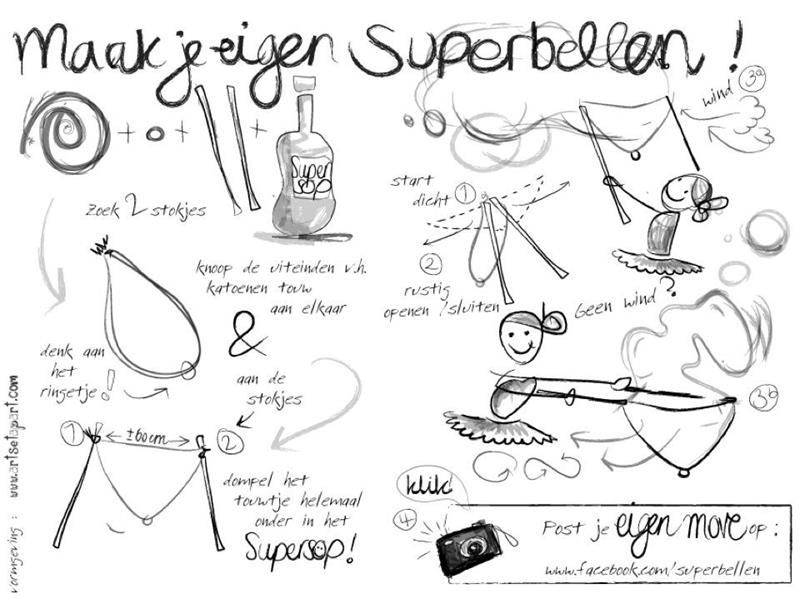 Maak je eigen Superbellen!
+ + +
Super
sop
zoek 2 stokjes
knoop de uiteinden v.h.
katoenen touw
aan elkaar
&
aan de
stokjes
denk aan
het
ringetje!
1 ±60cm 2
dompel het
touwtje helemaal
onder in het
Supersop!
vormgeving: www.artsetapart.com
start
dicht 1
2
rustig
openen / sluiten
wind 3a
Geen wind?
3b
klik!
4
Post je eigen move op:
www.facebook.com/superbellen